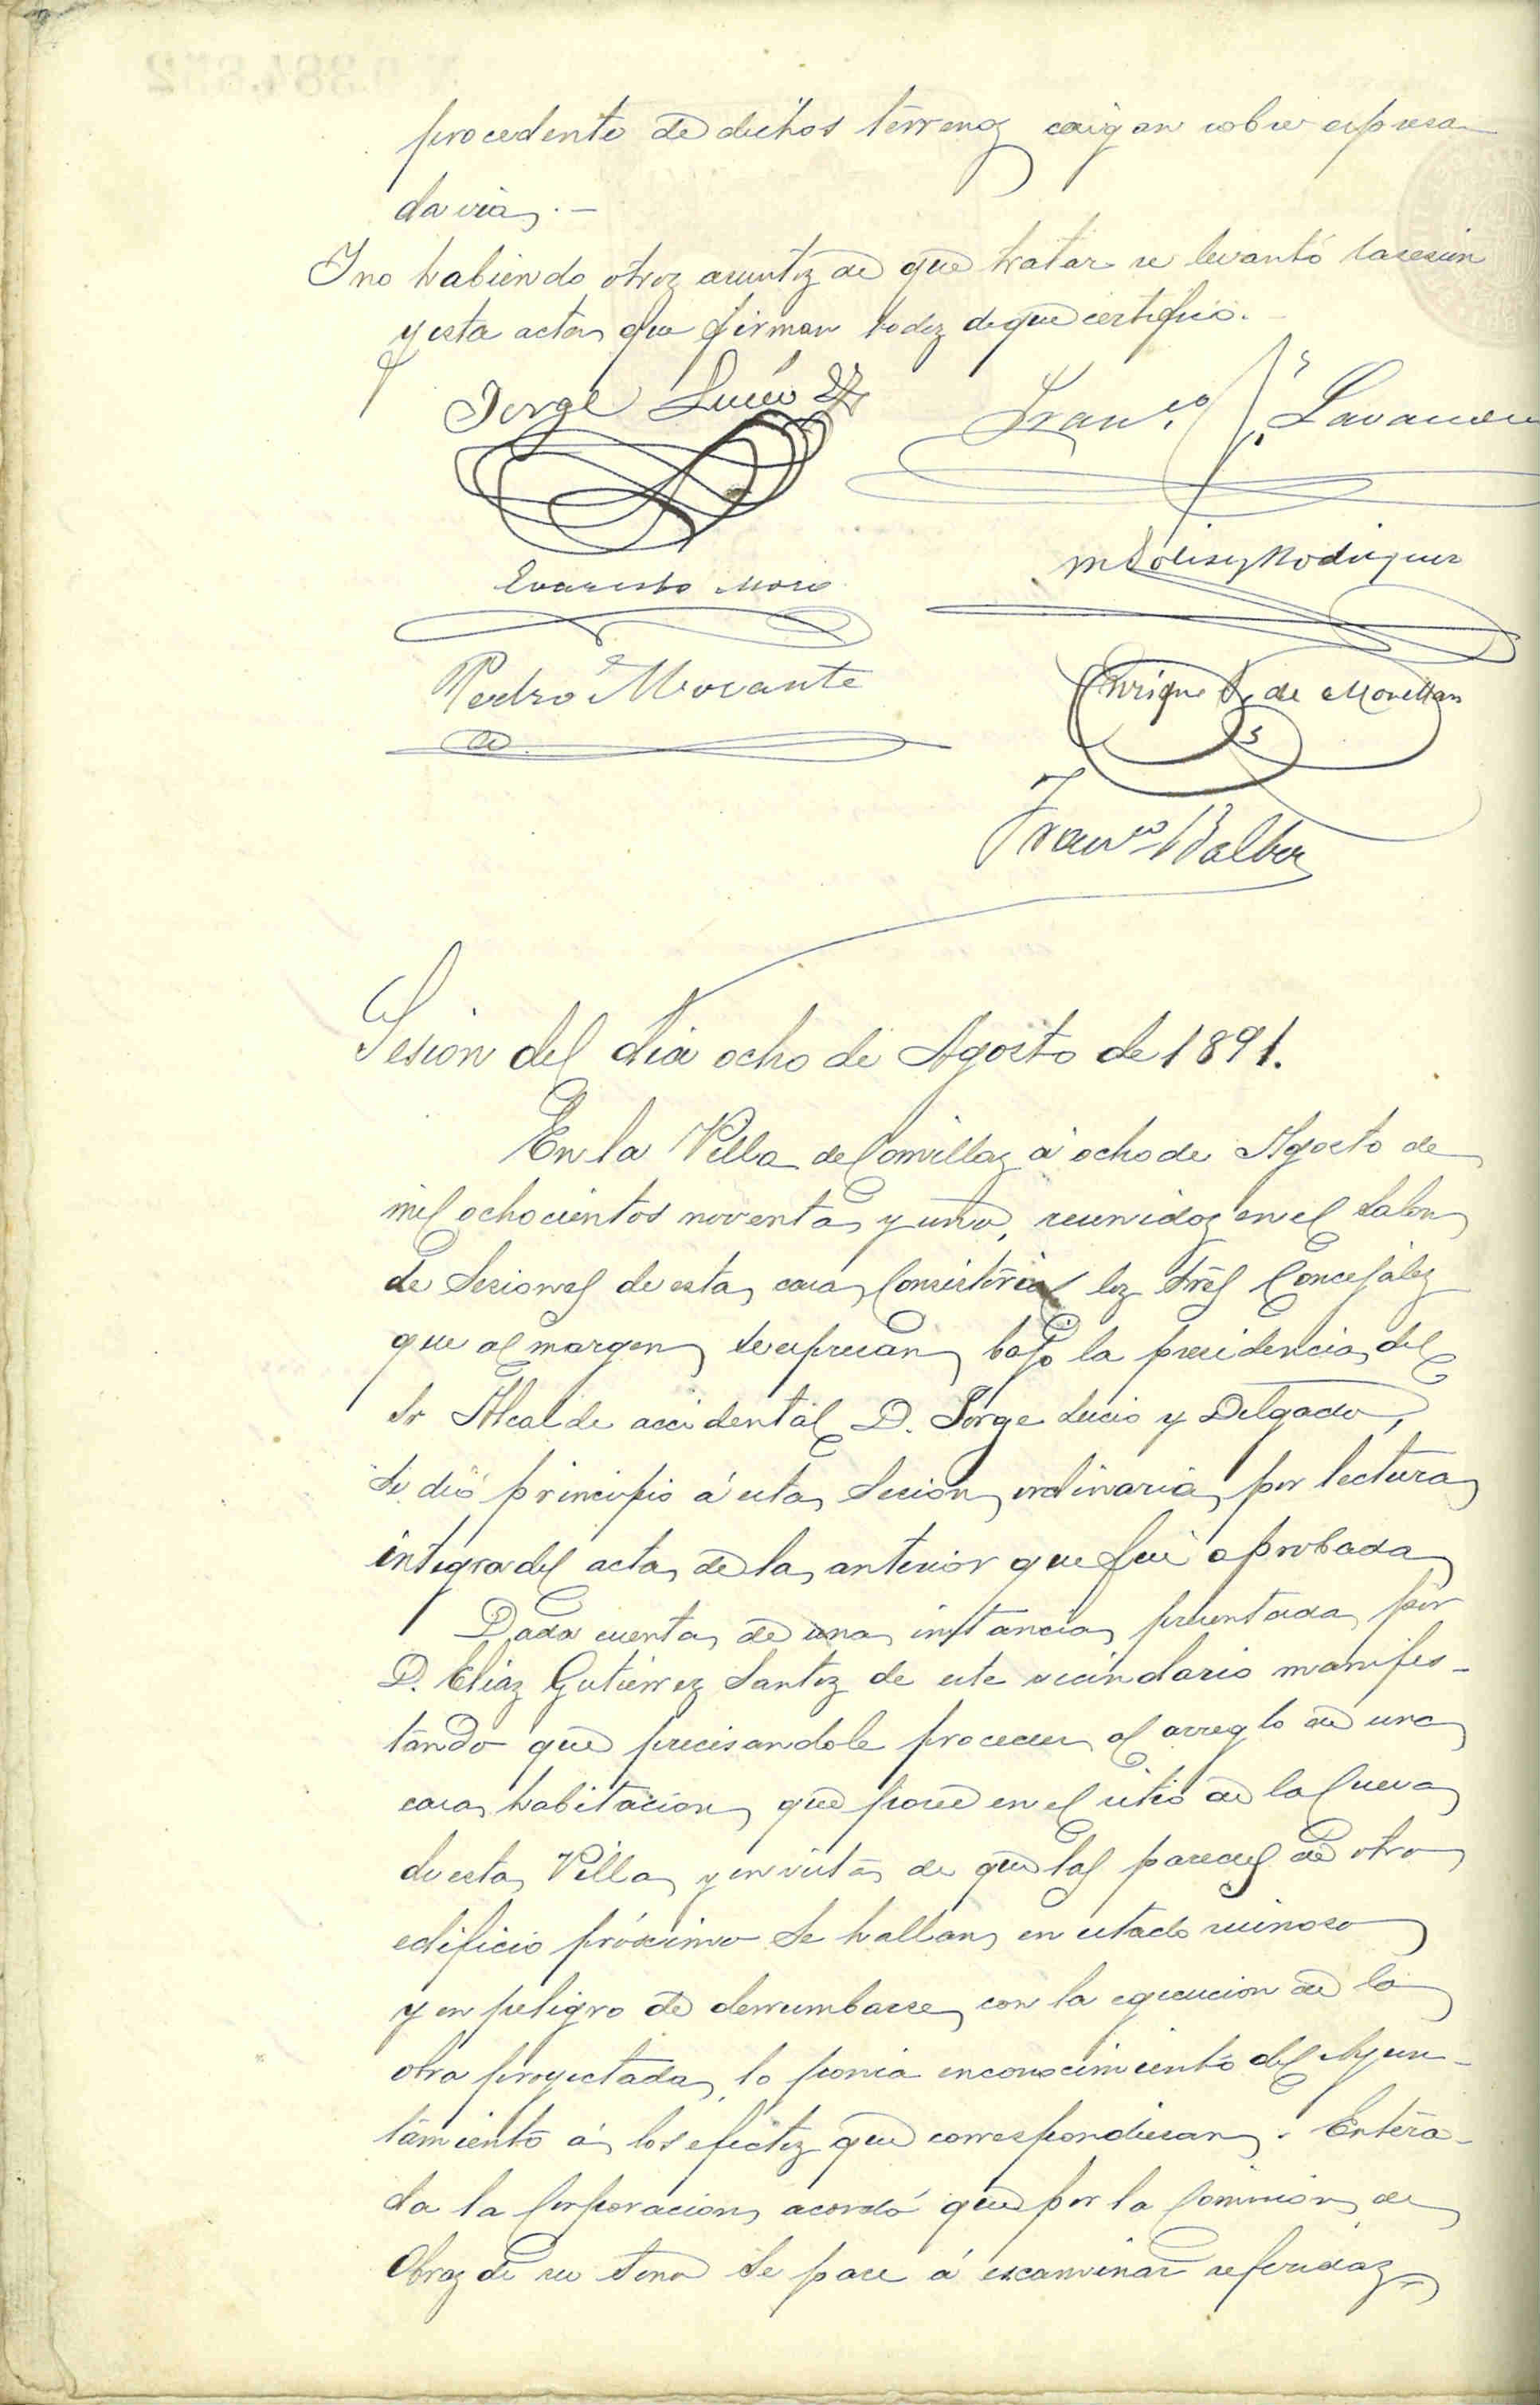 procedente de dichos terrenos caigan sobre espresa
da via. –
Y no habiendo otros asuntos de que tratar se levantó la sesion
y esta acta que firman todos de que certifico. –
Jorge Lucio
Franco Lavandu
Evaristo Moro
M Solis y Rodriguez
Pedro Movante
Enrique de Movellan
Franco Balbas
Sesion del dia ocho de Agosto de 1891.
En la Villa de Comillas á ocho de Agosto de
mil ochocientos noventa y uno, reunidos en el Salon
de Sesiones de esta casa Consistorial los Sres Concejales
que al margen se espresan bajo la presidencia del
Sr Alcalde accidental D. Jorge Lucio y Delgado,
se dió principio á esta Sesion ordinaria por lectura
integra del acta de la anterior que fué aprobada
Dada cuenta de una instancia presentada por
D. Elias Gutierrez Santos de este vecindario manifes-
tando que precisandole proceder al arreglo de una
casa habitacion que posee en el sitio de la Cueva
de esta Villa y en vista de que las paredes de otro
edificio próximo se hallan en estado ruinoso
y en peligro de derrumbarse con la egecucion de la
obra proyectada, lo ponia en conocimiento del Ayun-
tamiento á los efectos que correspondieran. Entera-
da la Corporacion acordó que por la Comision de
Obras de su seno se pase á examinar referidas